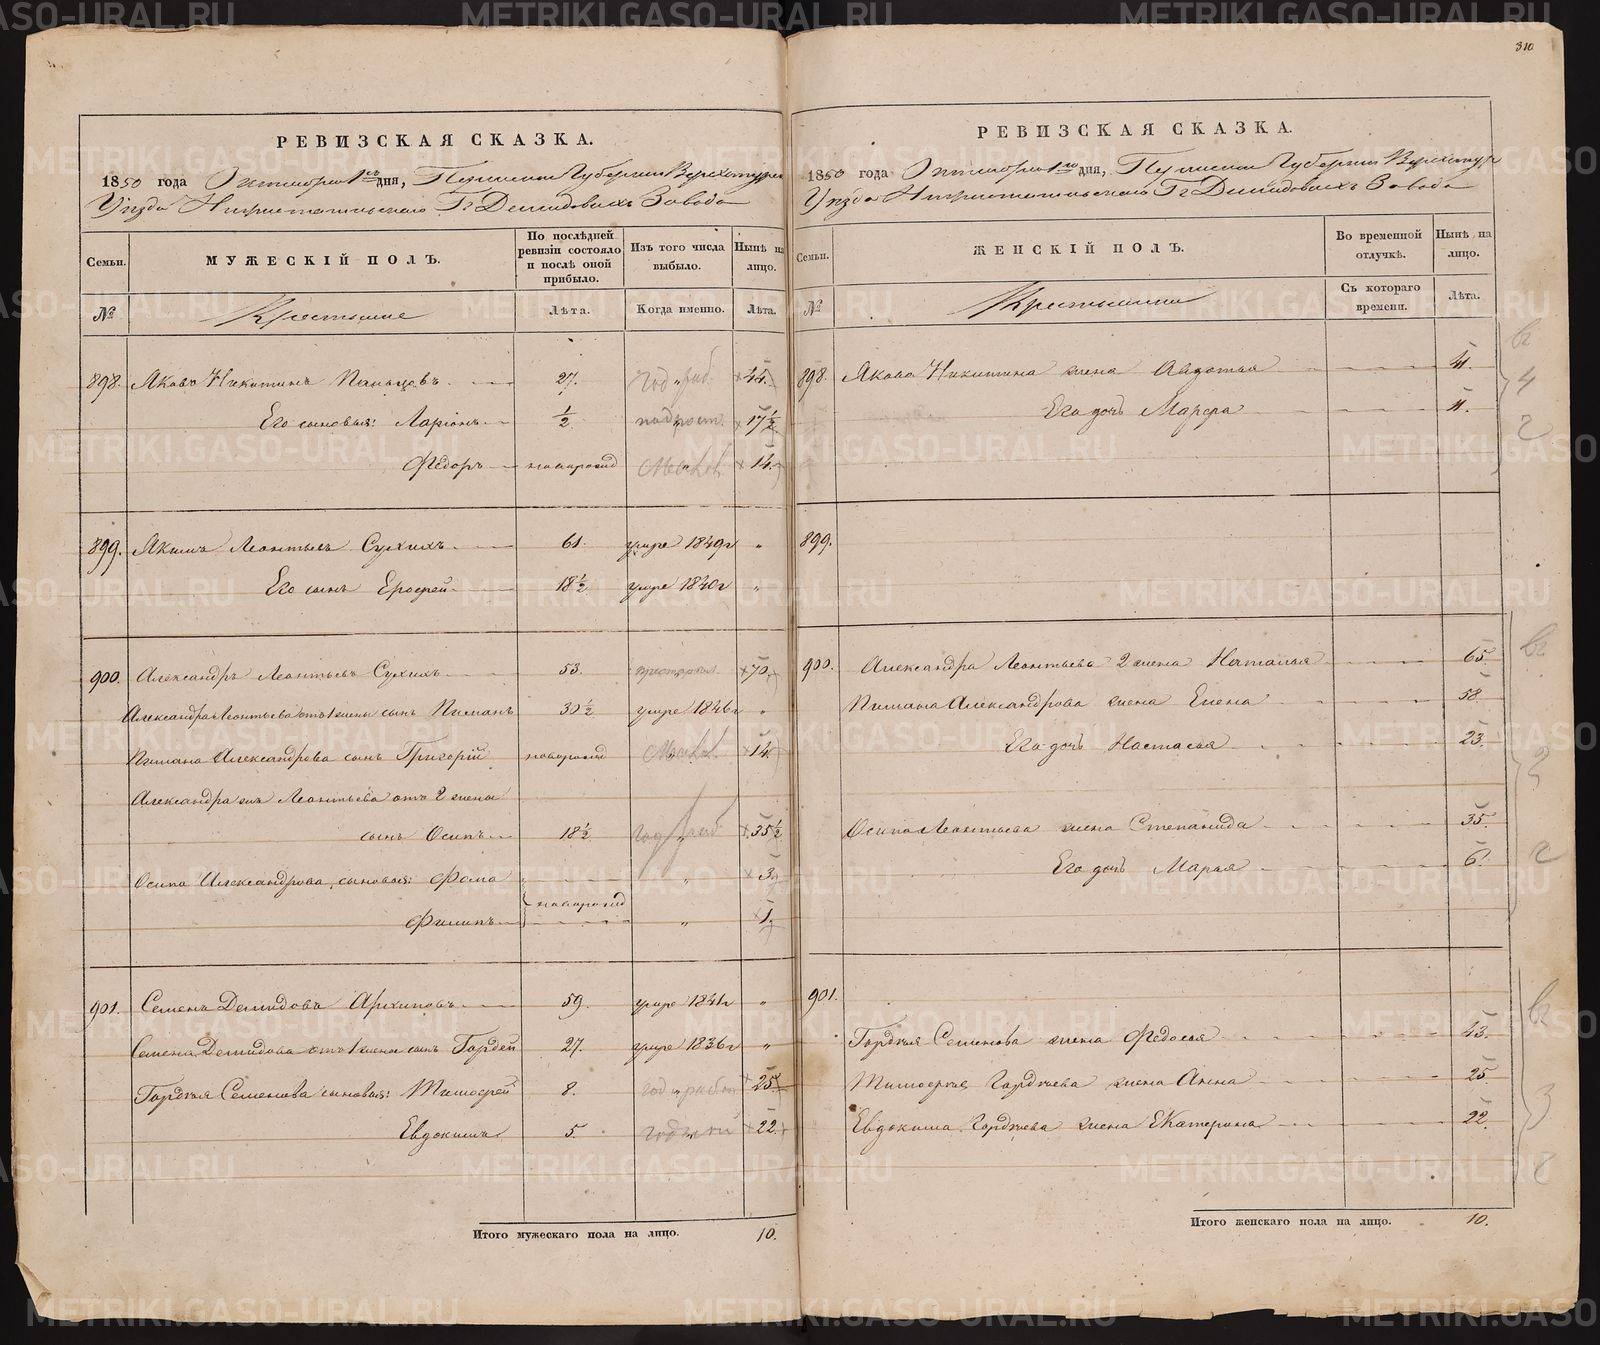 310
РЕВИЗСКАЯ СКАЗКА.
1850 года Октября 1го дня, Пермской Губернии Верхотурск
Уѣзда Нижнетагильскаго Гг Демидовыхъ Завода
Семьи.
МУЖЕСКІЙ ПОЛЪ.
По послѣдней ревизіи состояло и послѣ оной прибыло.
Изъ того числа выбыло.
Нынѣ на лицо.
№
Крестьяне
Лѣта.
Когда именно.
Лѣта.
898. Яковъ Никитинъ 27. 44.
Его сыновья: Ларіонъ ½ 17½
Ѳедоръ новорожд 14.
899. Якимъ Леонтьевъ Сухихъ 61. умре 1849г „
Его сынъ Ерофей 18½ умре 1840г „
900. Александръ Леонтьевъ Сухихъ 53. 70.
Александра Леонтьева отъ 1 жены сынъ Пиманъ 30½ умре 1846г „
Пимана Александрова сынъ Григорій новорожд „ 14.
Александра жъ Леонтьева отъ 2 жены
сынъ Осипъ 18½ „ 35½
Осипа Александрова сыновья: Фома „ 3
новорожд
Филипъ „ 1.
901. Семенъ Демидовъ Архиповъ 59. умре 1841г „
Семена Демидова отъ 1 жены сынъ Гордей 27. умре 1836г „
Гордѣя Семенова сыновья: Тимофей 8. 25
Евдокимъ 5. 22.
Итого мужескаго пола на лицо. 10.
РЕВИЗСКАЯ СКАЗКА.
1850 года Октября 1го дня, Пермской Губернии Верхотур
Уѣзда Нижнетагильскаго Гг Демидовыхъ Завода
Семьи.
ЖЕНСКІЙ ПОЛЪ.
Во временной отлучкѣ.
Нынѣ на лицо.
№
Крестьянки
Съ котораго времени.
Лѣта.
898. Якова Никитина жена Авдотья 41.
Его дочь Марфа 11.
899.
900. Александра Леонтьева 2 жена Наталья 65.
Пимана Александрова жена Елена 58
Его дочь Настасья 23.
Осипа Леонтьева жена Степанида 35.
Его дочь Марья 6.
901.
Гордѣя Семенова жена Федосья 43.
Тимофея Гордѣева жена Анна 25
Евдокима Гордѣева жена Екатерина 22.
Итого женскаго пола на лицо. 10.
METRIKI.GASO-URAL.RU